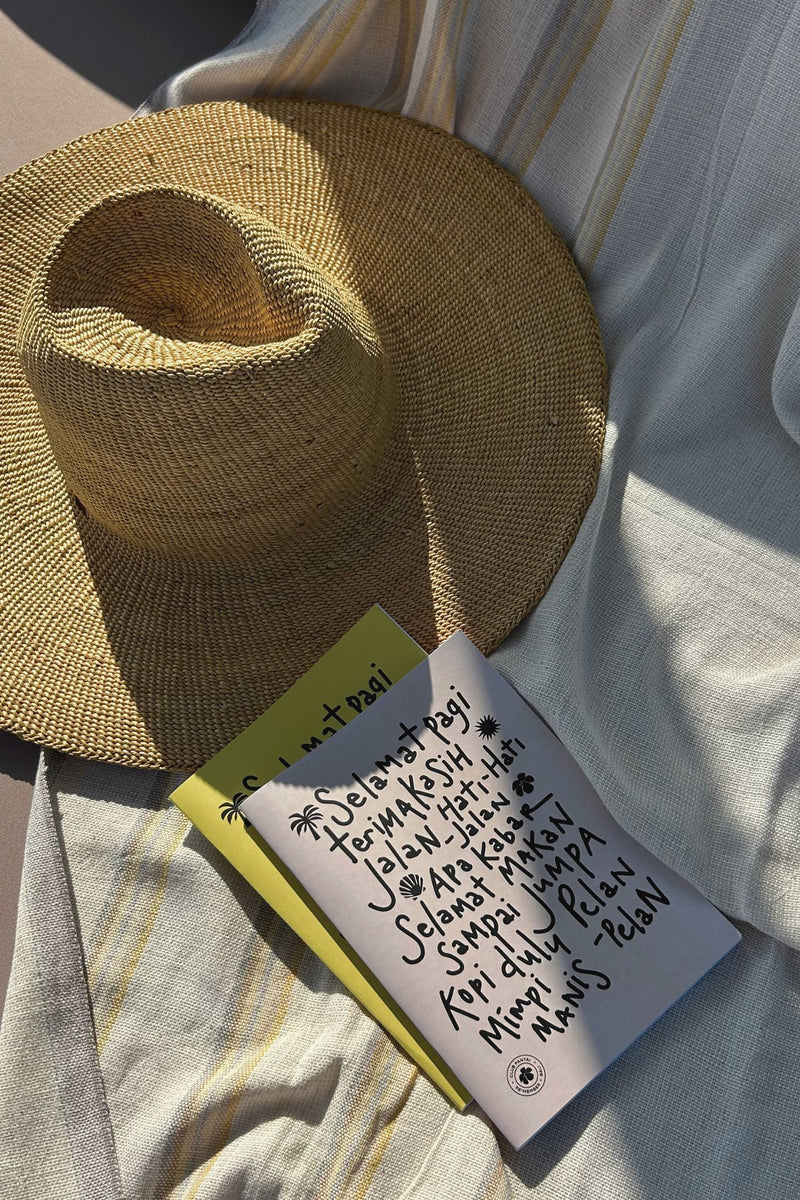 Selamat pagi
Selamat pagi
teriMA KASiH
JalaN Hati-Hati
Jalan
Apa Kabar
Selamat MAKAN
Sampai JUMPA
Kopi dulu Pelan
Mimpi -Pelan
MANiS
CLUB PANTAI